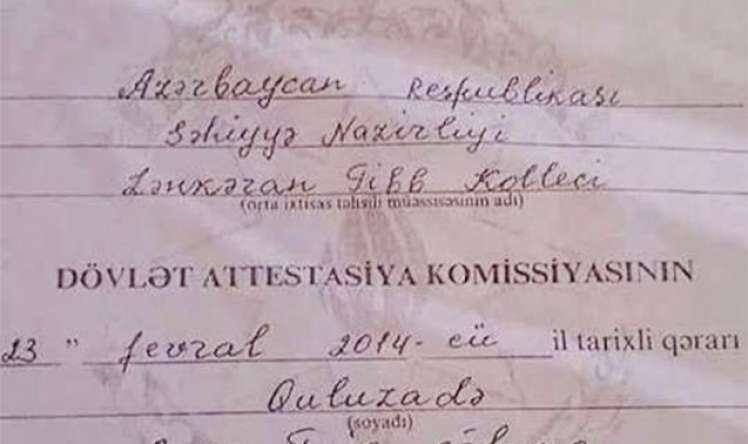 Azərbaycan Respublikası
Səhiyyə Nazirliyi
Lənkəran Tibb Kolleci
(orta ixtisas təhsili müəssisəsinin adı)
DÖVLƏT ATTESTASİYA KOMİSSİYASININ
23 " fevral 2014-cü il tarixli qərarı
Quluzadə
(soyadı)